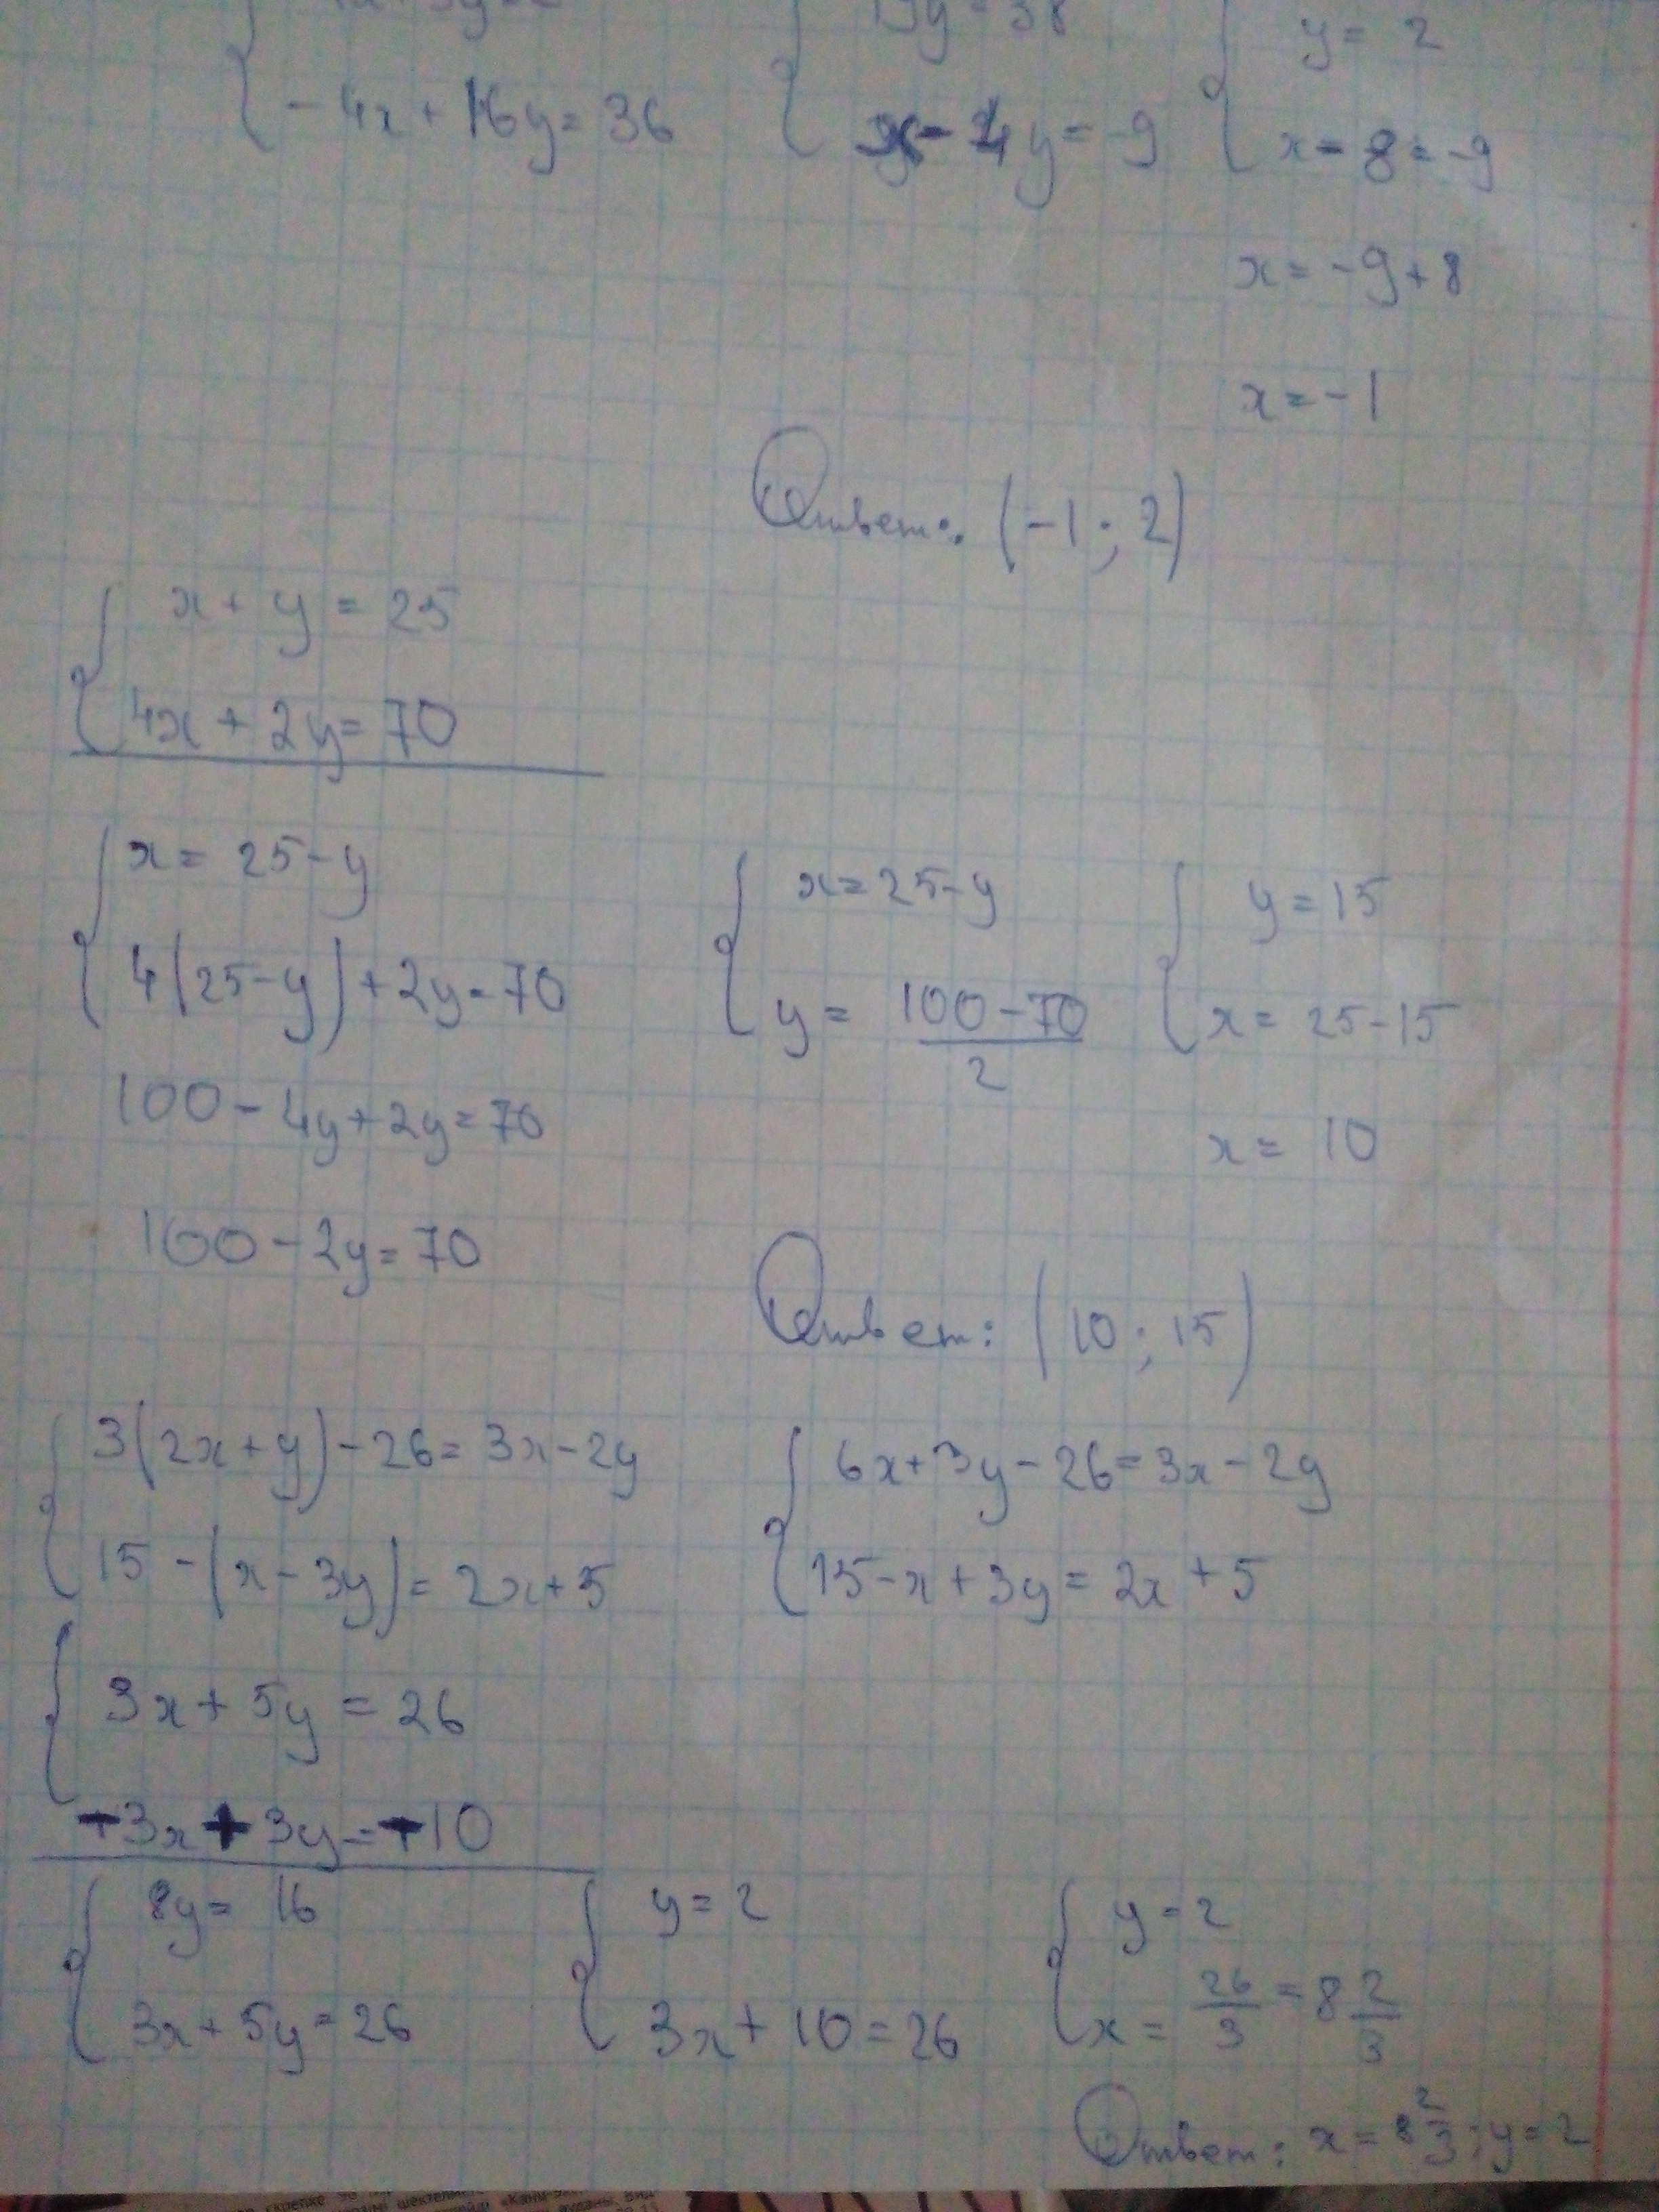 -4x + 16y = 36
19y = 38
x - 4y = -9
y = 2
x - 8 = -9
x = -9 + 8
x = -1
Ответ: (-1; 2)
x + y = 25
4x + 2y = 70
x = 25 - y
4(25 - y) + 2y = 70
100 - 4y + 2y = 70
100 - 2y = 70
x = 25 - y
y = 100 - 70 / 2
y = 15
x = 25 - 15
x = 10
Ответ: (10; 15)
3(2x + y) - 26 = 3x - 2y
15 - (x - 3y) = 2x + 5
6x + 3y - 26 = 3x - 2y
15 - x + 3y = 2x + 5
3x + 5y = 26
-3x + 3y = -10
8y = 16
3x + 5y = 26
y = 2
3x + 10 = 26
y = 2
x = 26/3 = 8 2/3
Ответ: x = 8 2/3; y = 2